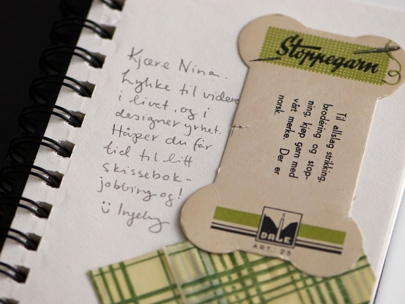 Kjære Nina.
Lykke til videre
i livet, og i
designer yrket.
Håper du får
tid til litt
skissebok-
jobbing og!
Ingeling
Stoppegarn
Til alslag strikking,
brodering og stop-
ning, kjøp garn med
vårt merke. Det er
norsk.
DALE
ART. 25